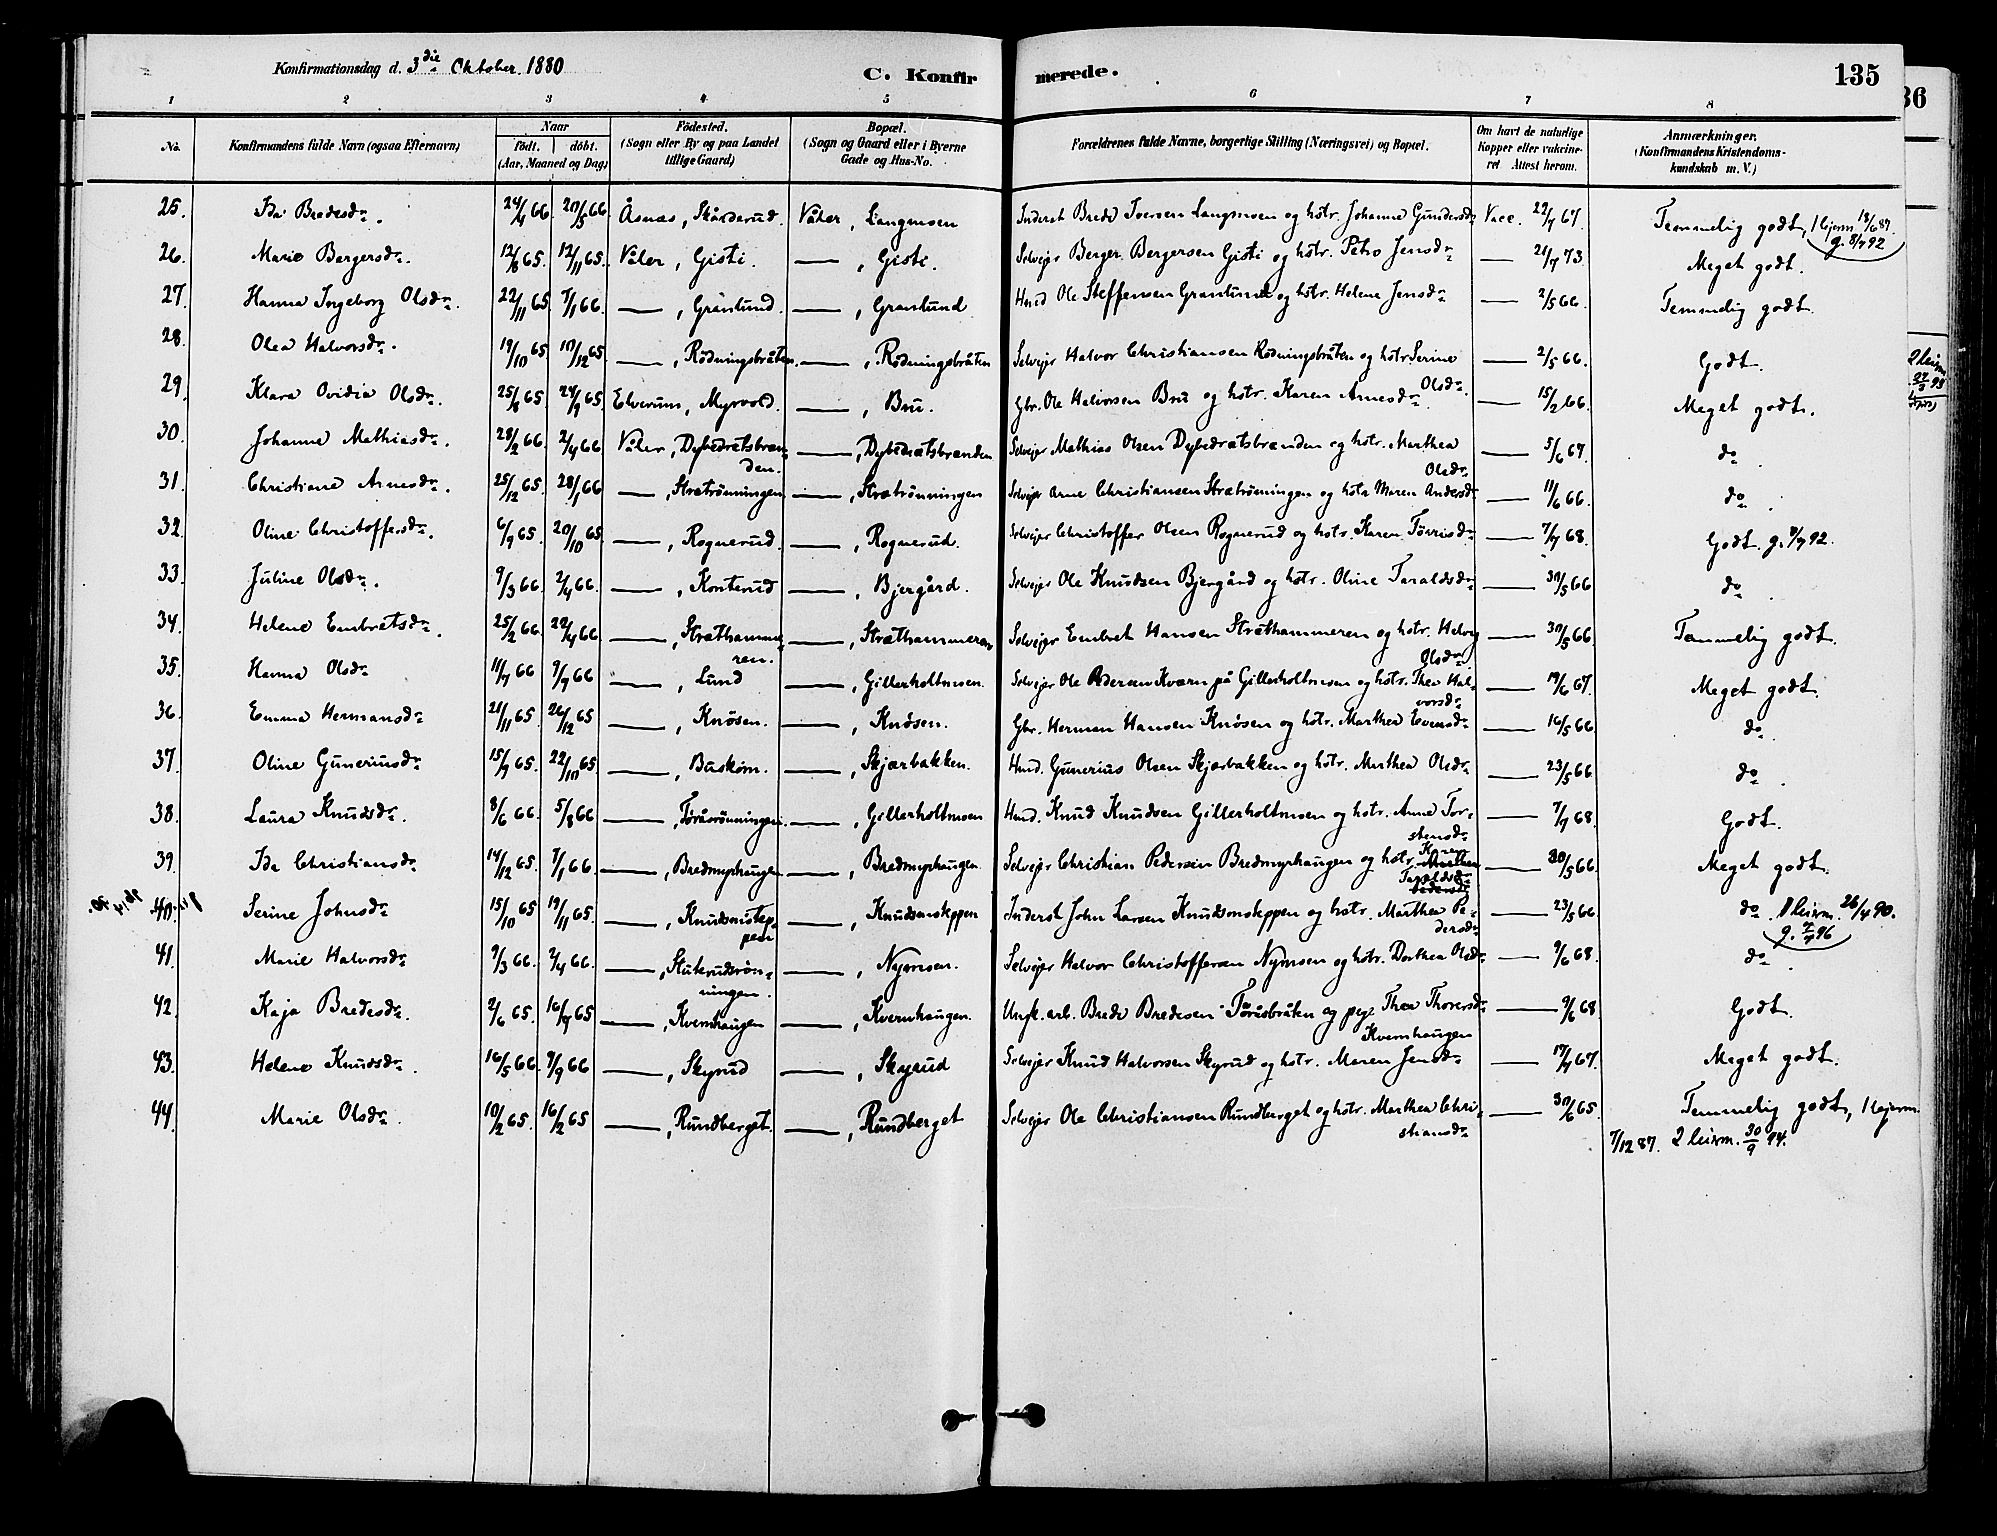 Konfirmationsdag d. 3die Oktober 1880
C. Konfirmerede.
135
36
1 2 3 4 5 6 7 8
No.
Konfirmandens fulde Navn (ogsaa Efternavn)
Naar
födt. döbt.
(Aar, Maaned og Dag)
Födested.
(Sogn eller By og paa Landet tillige Gaard)
Bopæl.
(Sogn og Gaard eller i Byerne Gade og Hus-No.
Forældrenes fulde Navne, borgerlige Stilling (Næringsvei) og Bopæl.
Om havt de naturlige Kopper eller vakcineret Attest herom.
Anmærkninger.
(Konfirmandens Kristendomskundskab m. V.)
25. Ida Bredesdr. 24/4 66 20/5 66 Åsnæs, Skårderud. Våler, Langmoen Inderst Brede Iversen Langmoen og hstr. Johanne Gundersdr. Vacc. 22/7 67. Temmelig godt, 1 lejerm 18/6 87. g. 8/7 92
26. Marie Bergersdr. 12/8 65. 12/11 65. Våler, Gisti. —, Gisti. Selvejer Berger Bergersen Gisti og hstr. Petro Jensdr. — 21/7 73. Meget godt.
27. Hanna Ingeborg Olsdr. 22/11 65 7/1 66. —, Granlund —, Granlund Hmd Ole Steffensen Granlund og hstr. Helene Jensdr — 2/5 66. Temmelig godt.
28. Olea Halvorsdr. 19/10 65 10/12 65 —, Rödningsbråten. —, Rödningsbråten Selvejer Halvor Christiansen Rödningsbråten og hstr Serine Olsdr. — 2/5 66. Godt.
29. Klara Ovidia Olsdr. 25/8 65 24/9 65. Elverum, Myrvold. —, Bru. Gbr. Ole Halvorsen Bru og hstr. Karen Arnesdr. — 15/2 66. Meget godt.
30. Johanne Mathiasdr. 28/2 66 2/4 66 Våler, Dybedratsbrænden. —, Dybedratsbrænden Selvejer Mathias Olsen Dybedratsbrænden og hstr. Marthea Olsdr. — 5/6 67. do.
31. Christiane Arnesdr. 25/12 65. 28/1 66 —, Strætrönningen —, Strætrönningen Selvejer Arne Christiansen Strætrönningen og hstr Maren Andersdr. — 11/6 66. do.
32. Oline Christoffersdr. 6/9 65. 20/10 65 —, Rognerud. —, Rognerud. Selvejer Christoffer Olsen Rognerud og hstr. Karen Törrisdr. — 7/7 68. Godt. g. 8/7 92.
33. Juline Olsdr. 9/3 66 2/4 66. —, Konterud —, Bjergård. Selvejer Ole Knudsen Bjergård og hstr. Oline Taraldsdr. — 30/5 66 do.
34. Helene Embretsdr. 25/2 66. 22/4 66 —, Stræthammeren. —, Stræthammeren Selvejer Embret Hansen Stræthammeren og hstr. Helvig Olsdr. — 30/5 66. Temmelig godt.
35. Hanna Olsdr 11/7 66 9/9 66 —, Lund —, Gillerholtmoen. Selvejer Ole Pedersen Kværn på Gillerholtmoen og hstr. Thea Halvorsdr. — 19/6 67. Meget godt.
36. Emma Hermansdr 21/11 65. 26/12 65 —, Knösen. —, Knösen. Gbr. Herman Hansen Knösen og hstr. Marthea Evensdr. — 16/5 66. do.
37. Oline Gunerinsdr 15/9 65. 22/10 65. —, Buskom. —, Skjærbakken. Hmd. Gunerius Olsen Skjærbakken og hstr. Marthea Olsdr. — 23/5 66 do.
38. Laura Knudsdr. 8/6 66. 5/8 66 —, Töråsrönningen. —, Gillerholtmoen Hmd. Knud Knudsen Gillerholtmoen og hstr. Anne Torstensdr. — 7/7 68. Godt.
39 Ida Christiansdr 14/12 65. 7/1 66. —, Bredmyrhaugen —, Bredmyrhaugen Selvejer Christian Pedersen Bredmyrhaugen og hstr. Karen Marthea Taraldsdr. Pedersdr — 30/5 66 Meget godt.
40. Serine Johnsdr. 15/10 65 19/11 65. —, Knudsmoteppen —, Knudsmoteppen Inderst John Larsen Knudsmoteppen og hstr. Marthea Pedersdr. — 23/5 66. do. 1 leierm. 26/4 90. g. 7/7 96
41. Marie Halvorsdr 9/3 66. 2/4 66. —, Stuterudrönningen. —, Nymoen. Selvejer Halvor Christoffersen Nymoen og hstr. Dorthea Olsdr. — 9/6 68. do.
42. Kaja Bredesdr. 2/6 65. 16/7 65 —, Kvernhaugen —, Kvernhaugen. Ungk. arb. Brede Bredesen Töråsbråten og pige Thea Thoresdr Kvernhaugen — 9/6 68 Godt.
43. Helene Knudsdr. 16/5 66. 9/9 66 —, Skyrud —, Skyrud Selvejer Knud Halvorsen Skyrud og hstr. Maren Jensdr. — 17/7 67. Meget godt.
44. Marie Olsdr. 10/2 65. 16/2 65 —, Rundberget. —, Rundberget Selvejer Ole Christiansen Rundberget og hstr. Marthea Christiansdr — 30/6 65. Temmelig godt, 1 lejerm. 7/12 87. 2 leierm. 30/9 94.